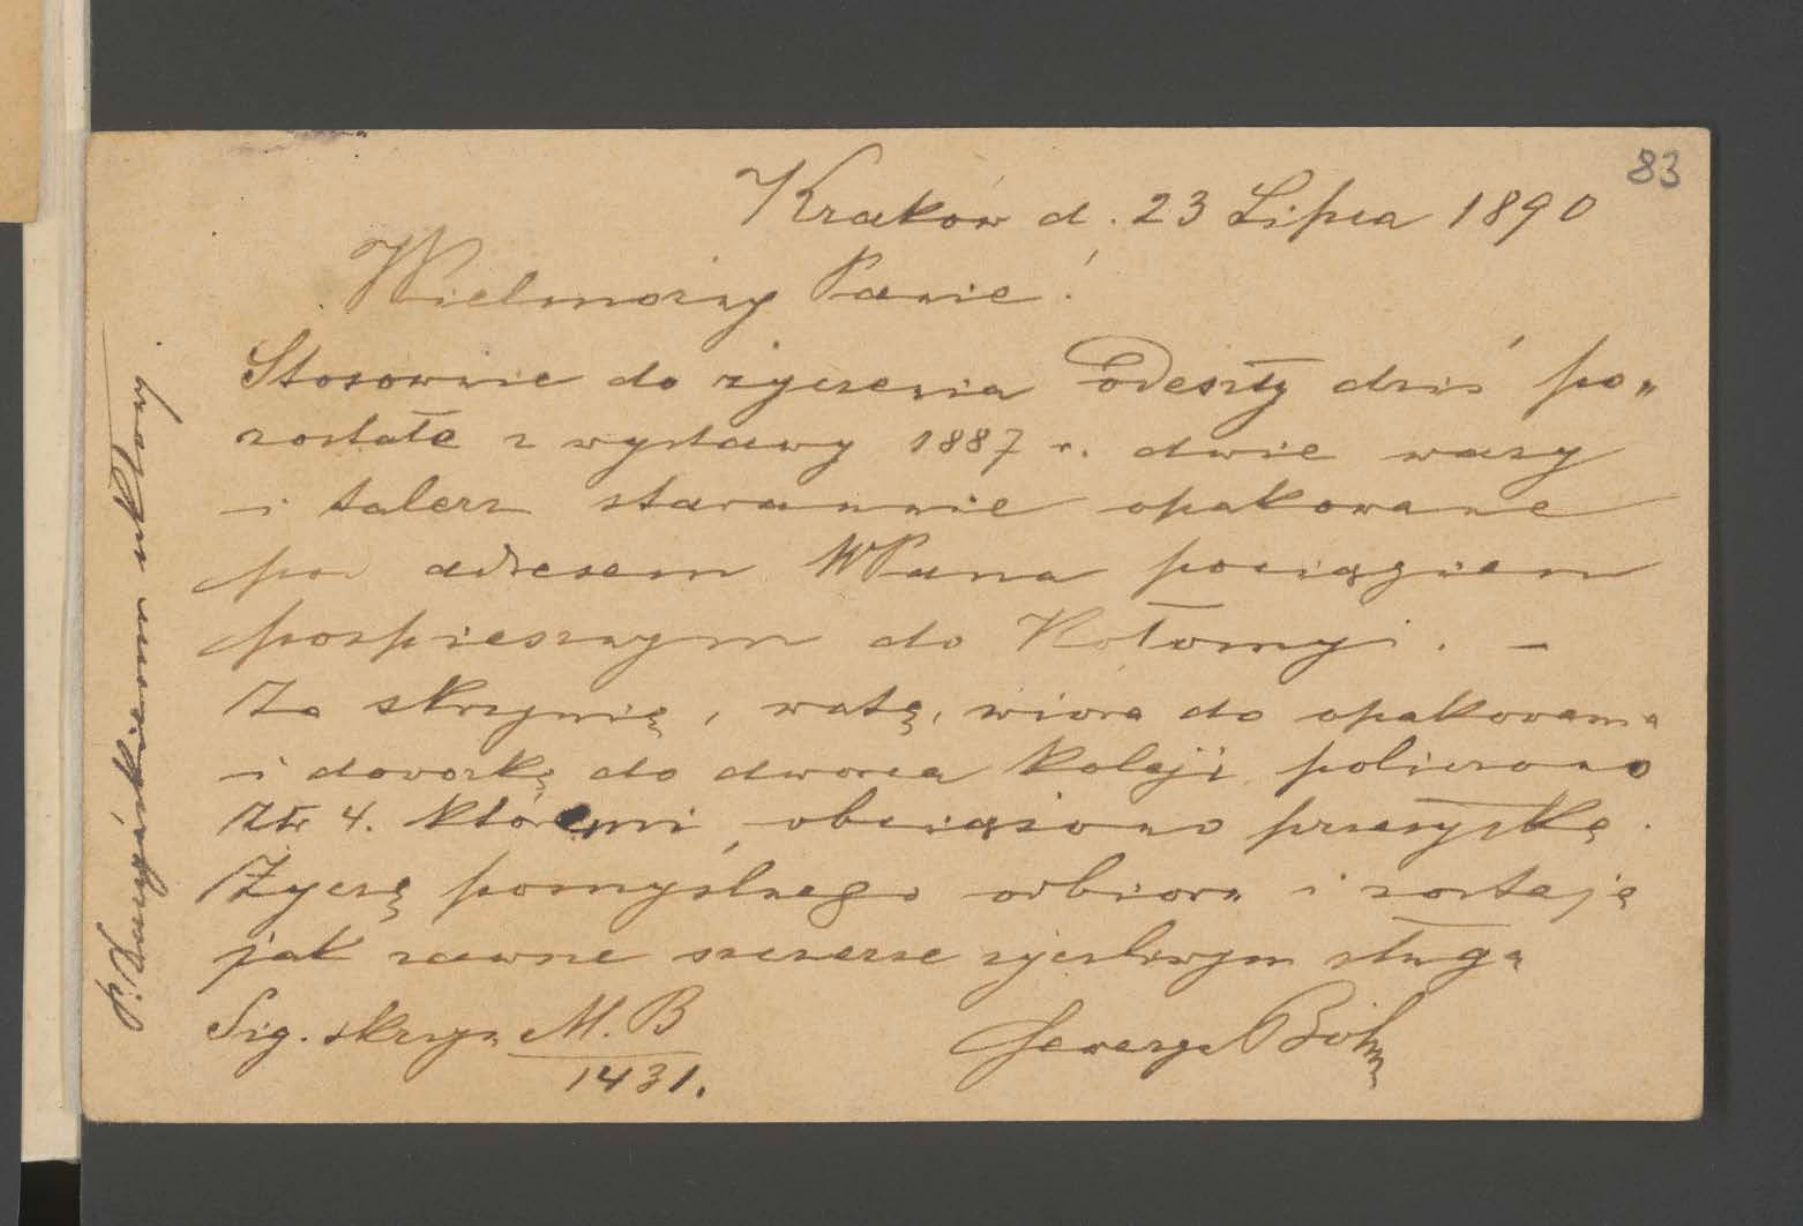 83
Kraków d. 23 Lipca 1890
Wielmożny Panie!
Stosownie do życzenia Odeszły dziś po„
zostałe z wystawy 1887 r. dwie wazy
i talerz starannie opakowane
pod adresem WPana pociągiem
pospiesznym do Kołomyi. –
Za skrzynię, watę, wióra do opakowania
i dovozkę do dworca koleji policzono
Złr 4. któremi obciążono przesyłkę.
Życzę pomyślnego odbioru i zostaję
jak zawsze szczerze życzliwym sługą
Sig. skrzyn M. B
1431.
Seweryn Böhm
ukłony